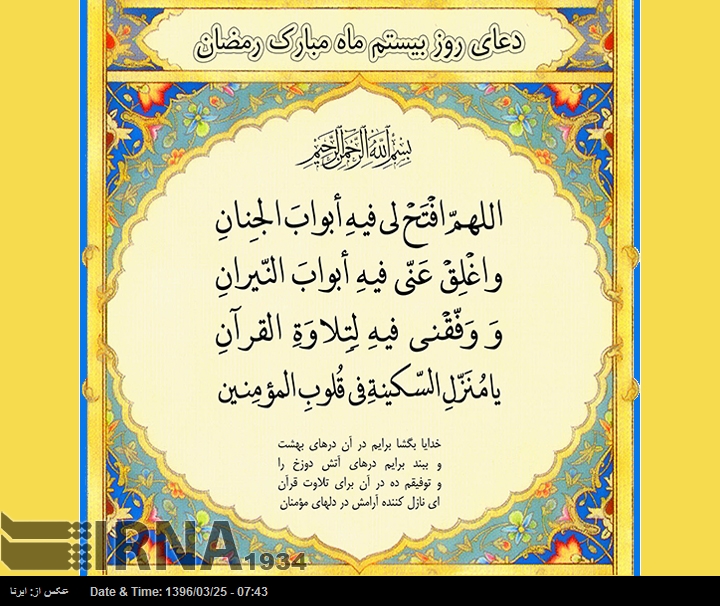 دعای روز بیستم ماه مبارک رمضان
بسم الله الرحمن الرحیم
اللهمّ افْتَحْ لی فیهِ أبوابَ الجِنانِ
واغْلِقْ عَنّی فیهِ أبوابَ النّیرانِ
وَ وَفّقْنی فیهِ لِتِلاوَةِ القرآنِ
یا مُنَزّلِ السّکینةِ فی قُلوبِ المؤمِنین
خدایا بگشا برایم در آن درهای بهشت
و ببند برایم درهای آتش دوزخ را
و توفیقم ده در آن برای تلاوت قرآن
ای نازل کننده آرامش در دلهای مؤمنان
IRNA 1934
عکس از: ایرنا Date & Time: 1396/03/25 - 07:43